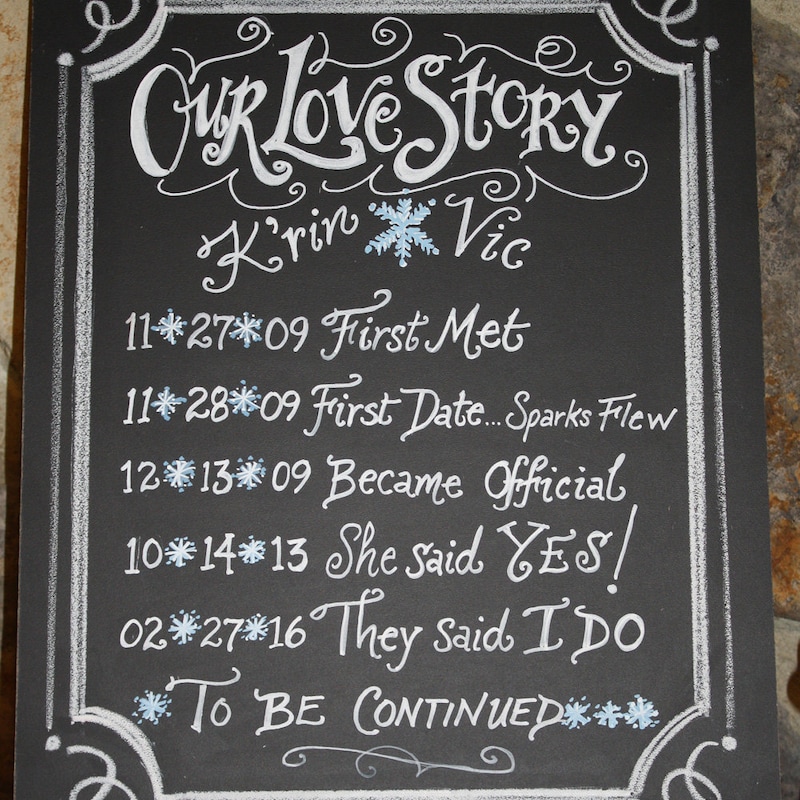 OUR LOVE STORY
K'rin Vic
11 27 09 First Met
11 28 09 First Date... Sparks Flew
12 13 09 Became Official
10 14 13 She said YES!
02 27 16 They said I DO
TO BE CONTINUED